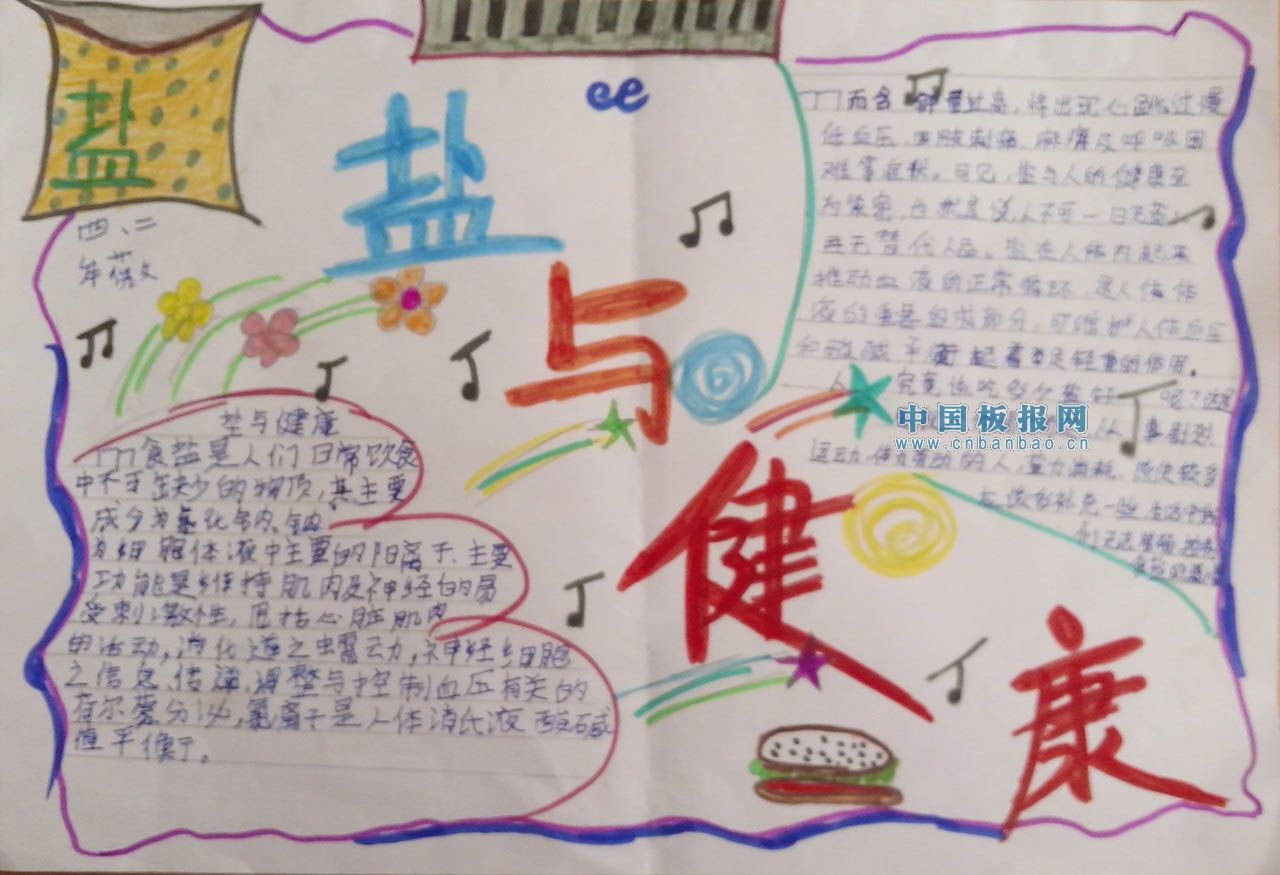 盐
四、二
盐
与
健
康
盐与健康
食盐是人们日常饮食
中不可缺少的物质,其主要
成分为氯化钠、钠
为细胞体液中主要的阳离子、主要
功能是维持肌肉及神经的易
受刺激性,包括心脏肌肉
的活动,消化道之蠕动,神经细胞
之信息传递,调整与控制血压有关的
荷尔蒙分泌,氯离子是人体消氏液酸碱
值平衡了。
而含钾量过高,将出现心跳过慢
低血压,四肢刺痛,麻痹及呼吸困
难等症状。可见,盐与人的健康至
为紧密,
再无替代人品。盐在人体内起来
推动血液的正常循环,是人体体
液的重要组成部分,可维护人体血压
和酸碱平衡起着举足轻重的作用。
人 究竟该吃多少盐好 呢?
人从事剧烈
运动,体力劳动的人,
应该多补充一些,生活中我
中国板报网
www.cnbanbao.cn